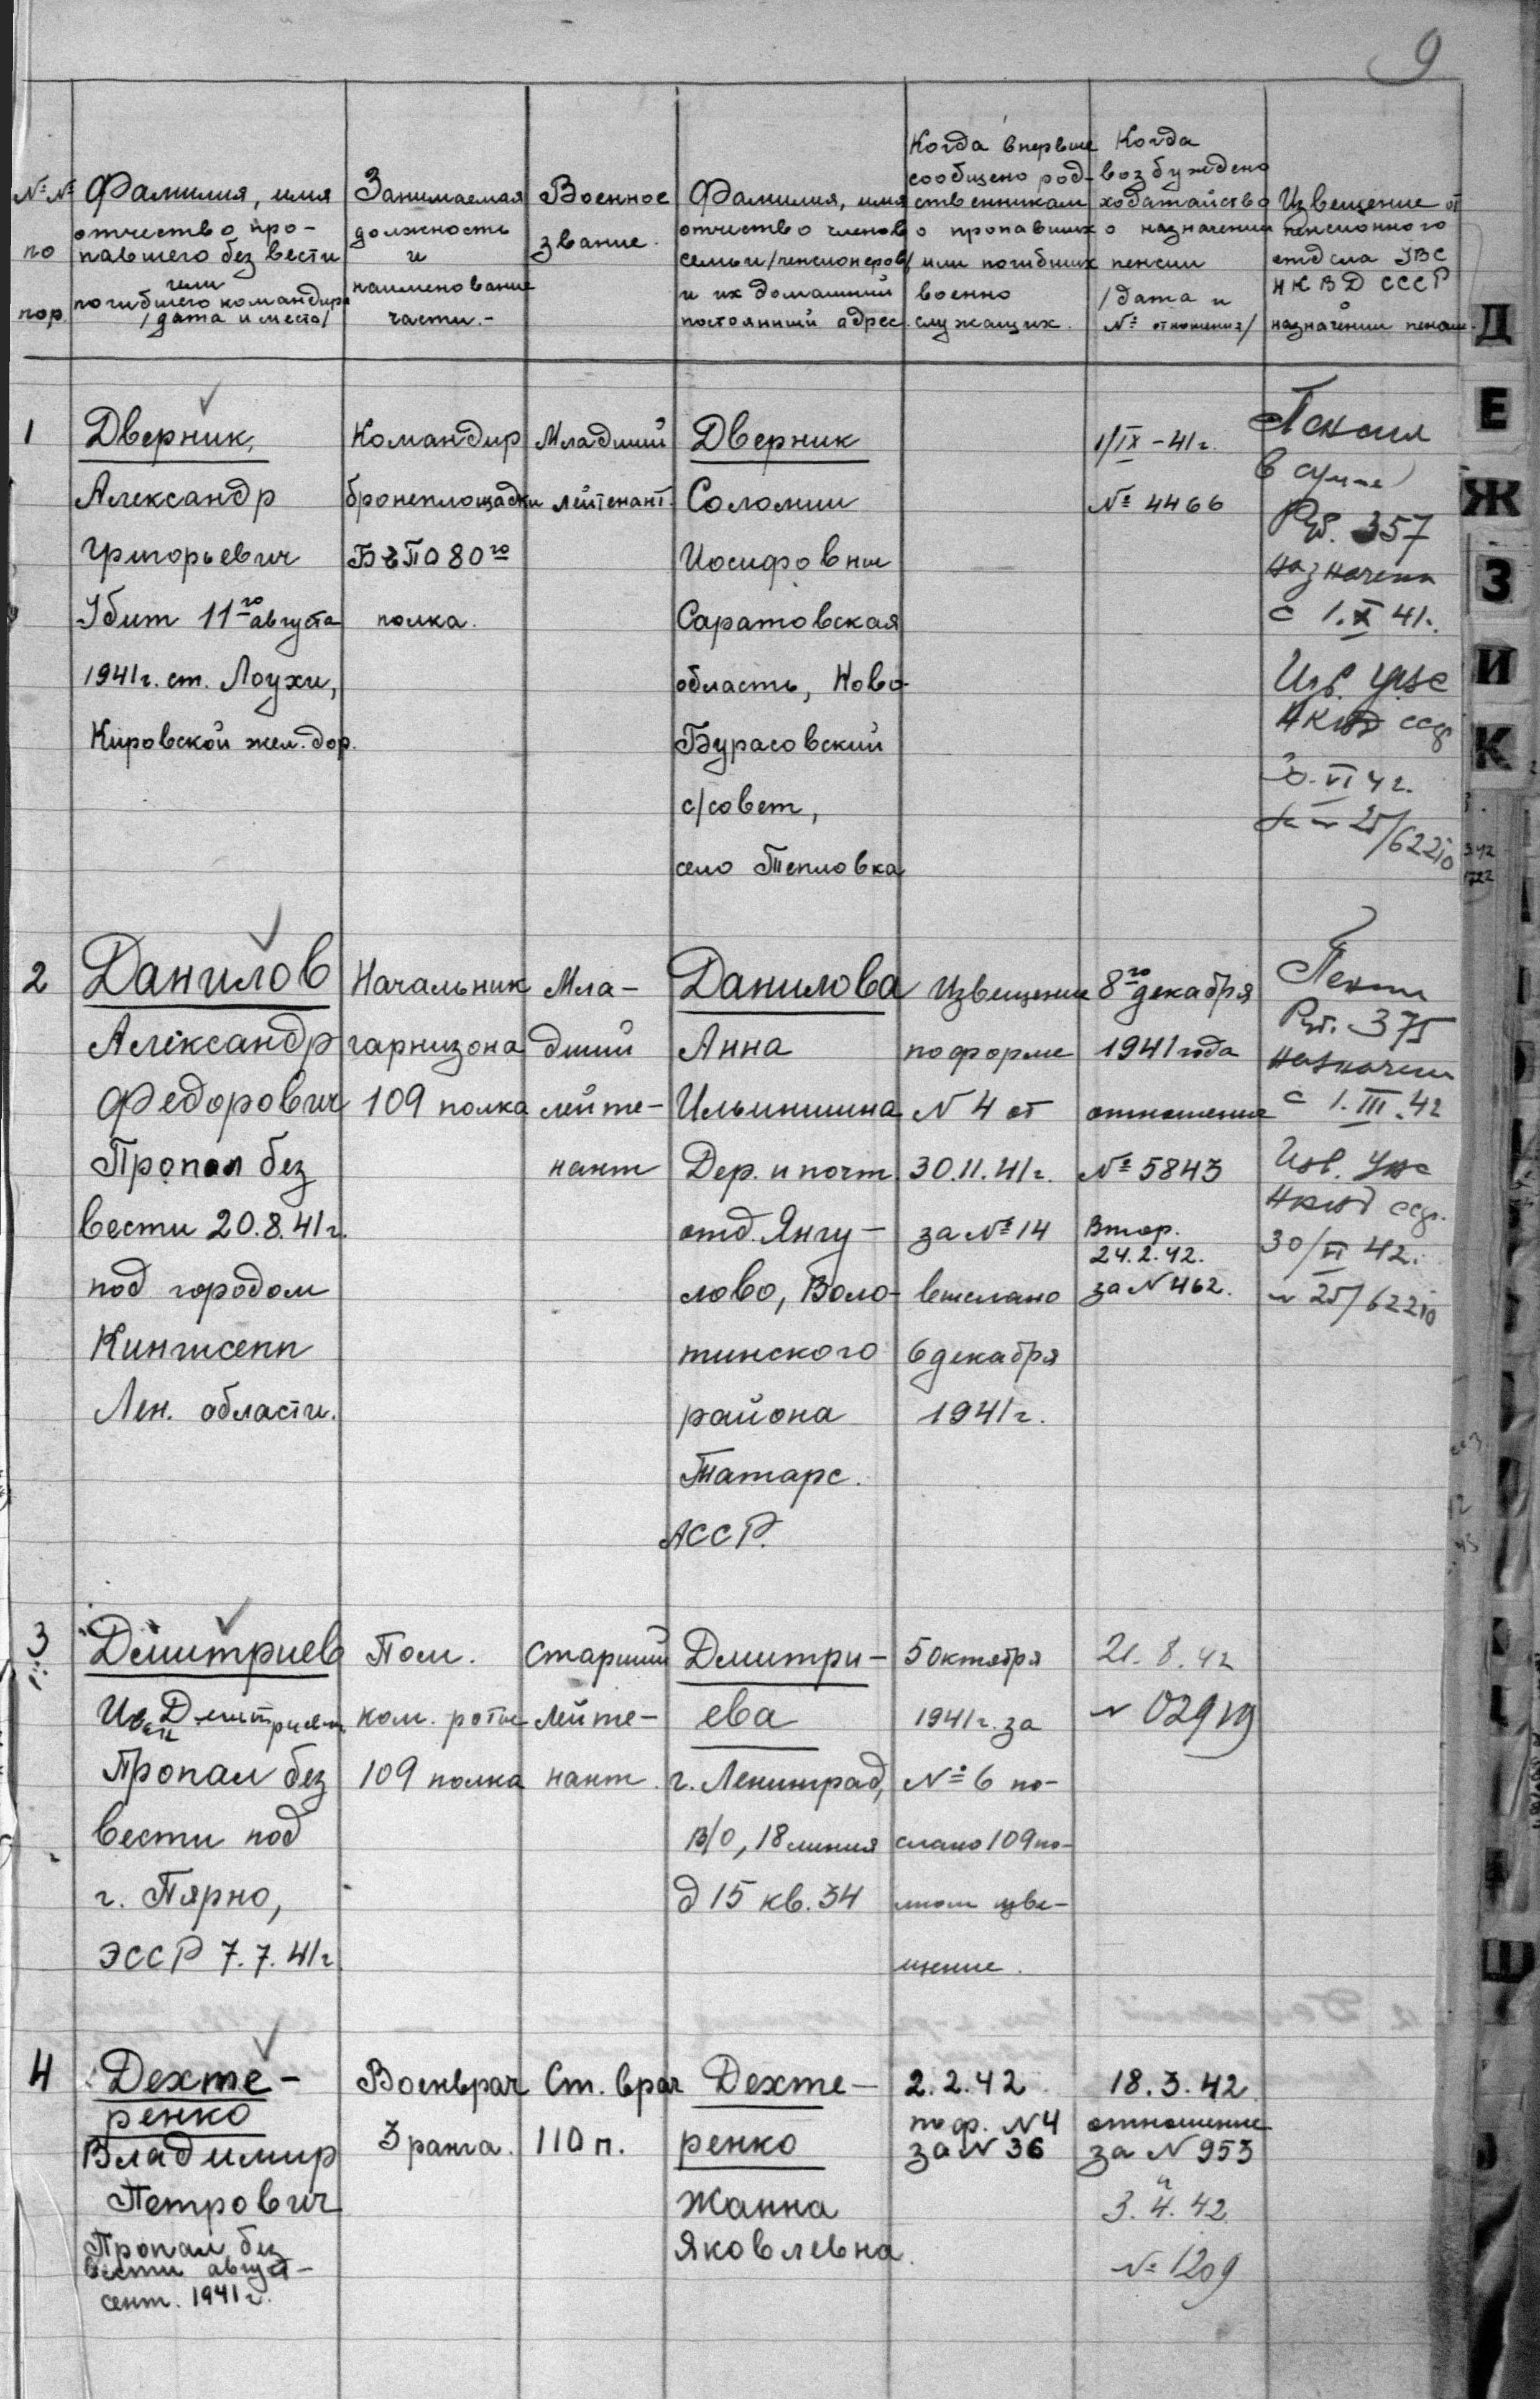 9
№№ по пор.
Фамилия, имя
отчество про-
павшего без вести
или
погибшего командира
/дата и место/
Занимаемая
должность
и
наименование
части.-
Военное
звание.
Фамилия, имя
отчество членов
семьи /пенсионеров/
и их домашний
постоянный адрес
Когда впервые
сообщено род-
ственникам
о пропавших
или погибших
военно
служащих.
Когда
возбуждено
ходатайство
о назначении
пенсии
/дата и
№ отношения/
Извещение от
пенсионного
отдела УВС
НКВД СССР
о
назначении пенсии.
1
Дверник,
Александр
Григорьевич
Убит 11го августа
1941г. ст. Лоухи,
Кировской жел. дор.
Командир
бронеплощадки
БЕПО 80го
полка.
Младший
лейтенант.
Дверник
Соломии
Иосифовны
Саратовская
область, Ново-
Бурасовский
с/совет,
село Тепловка
1/IX-41г.
№ 4466
Пенсия
в сумме
Руб. 357
назначена
с 1.X 41.
Изв. УВС
НКВД ссср
30.VI 42.
25/62210
2
Данилов
Александр
Федорович
Пропал без
вести 20.8.41г.
под городом
Кингисепп
Лен. области.
Начальник
гарнизона
109 полка
Мла-
дший
лейте-
нант
Данилова
Анна
Ильинишна
Дер. и почт.
отд. Янгу-
лово, Воло-
тинского
района
Татарс.
АССР.
Извещение
по форме
N 4 от
30.11.41г.
за № 14
выслано
6 декабря
1941г.
8го декабря
1941 года
отношение
№ 5843
Втор.
24.2.42.
за N 462.
Пенсия
Руб. 375
назначена
с 1.III.42
Изв. УВС
НКВД ссср.
30/VI 42.
N 25/62210
3
Дмитриев
Иван Дмитриевич
Пропал без
вести под
г. Пярно,
ЭССР 7.7.41г.
Пом.
ком. роты
109 полка
Старший
лейте-
нант.
Дмитри-
ева
г. Ленинград,
В/О, 18 линия
д 15 кв. 34
5 октября
1941г. за
№ 6 по-
слано 109 по-
лком изве-
щение.
21.8.42
N 02919
4
Дехте-
ренко
Владимир
Петрович
Пропал без
вести август-
сент. 1941г.
Военврач
3 ранга.
Ст. врач
110 п.
Дехте-
ренко
Жанна
Яковлевна.
2.2.42
по ф. N4
за N 36
18.3.42
отношение
за N 953
и
3.4.42
№ 1209
Д
Е
Ж
З
И
К
Ш